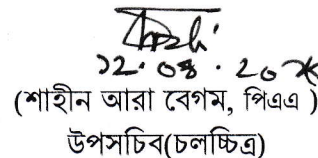 ১২.০৪.২০
(শাহীন আরা বেগম, পিএএ )
উপসচিব(চলচ্চিত্র)